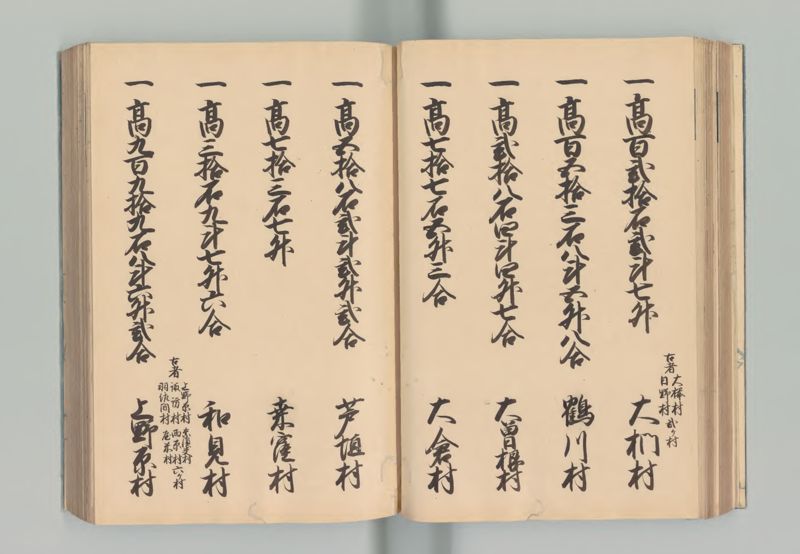 一高百弐拾石弐斗七升
古者 大椚村 弐ヶ村
日野村
大椚村
一高百五拾三石八斗五升八合
鶴川村
一高弐拾八石四斗四升七合
大曽根村
一高七拾七石五升三合
大倉村
一高五拾八石弐斗弐升弐合
芦垣村
一高七拾三石七升
桑窪村
一高三拾石九斗七升六合
和見村
一高九百九拾九石八斗六升弐合
古者 上野原村
諏訪村 西原村 六ヶ村
上野原村